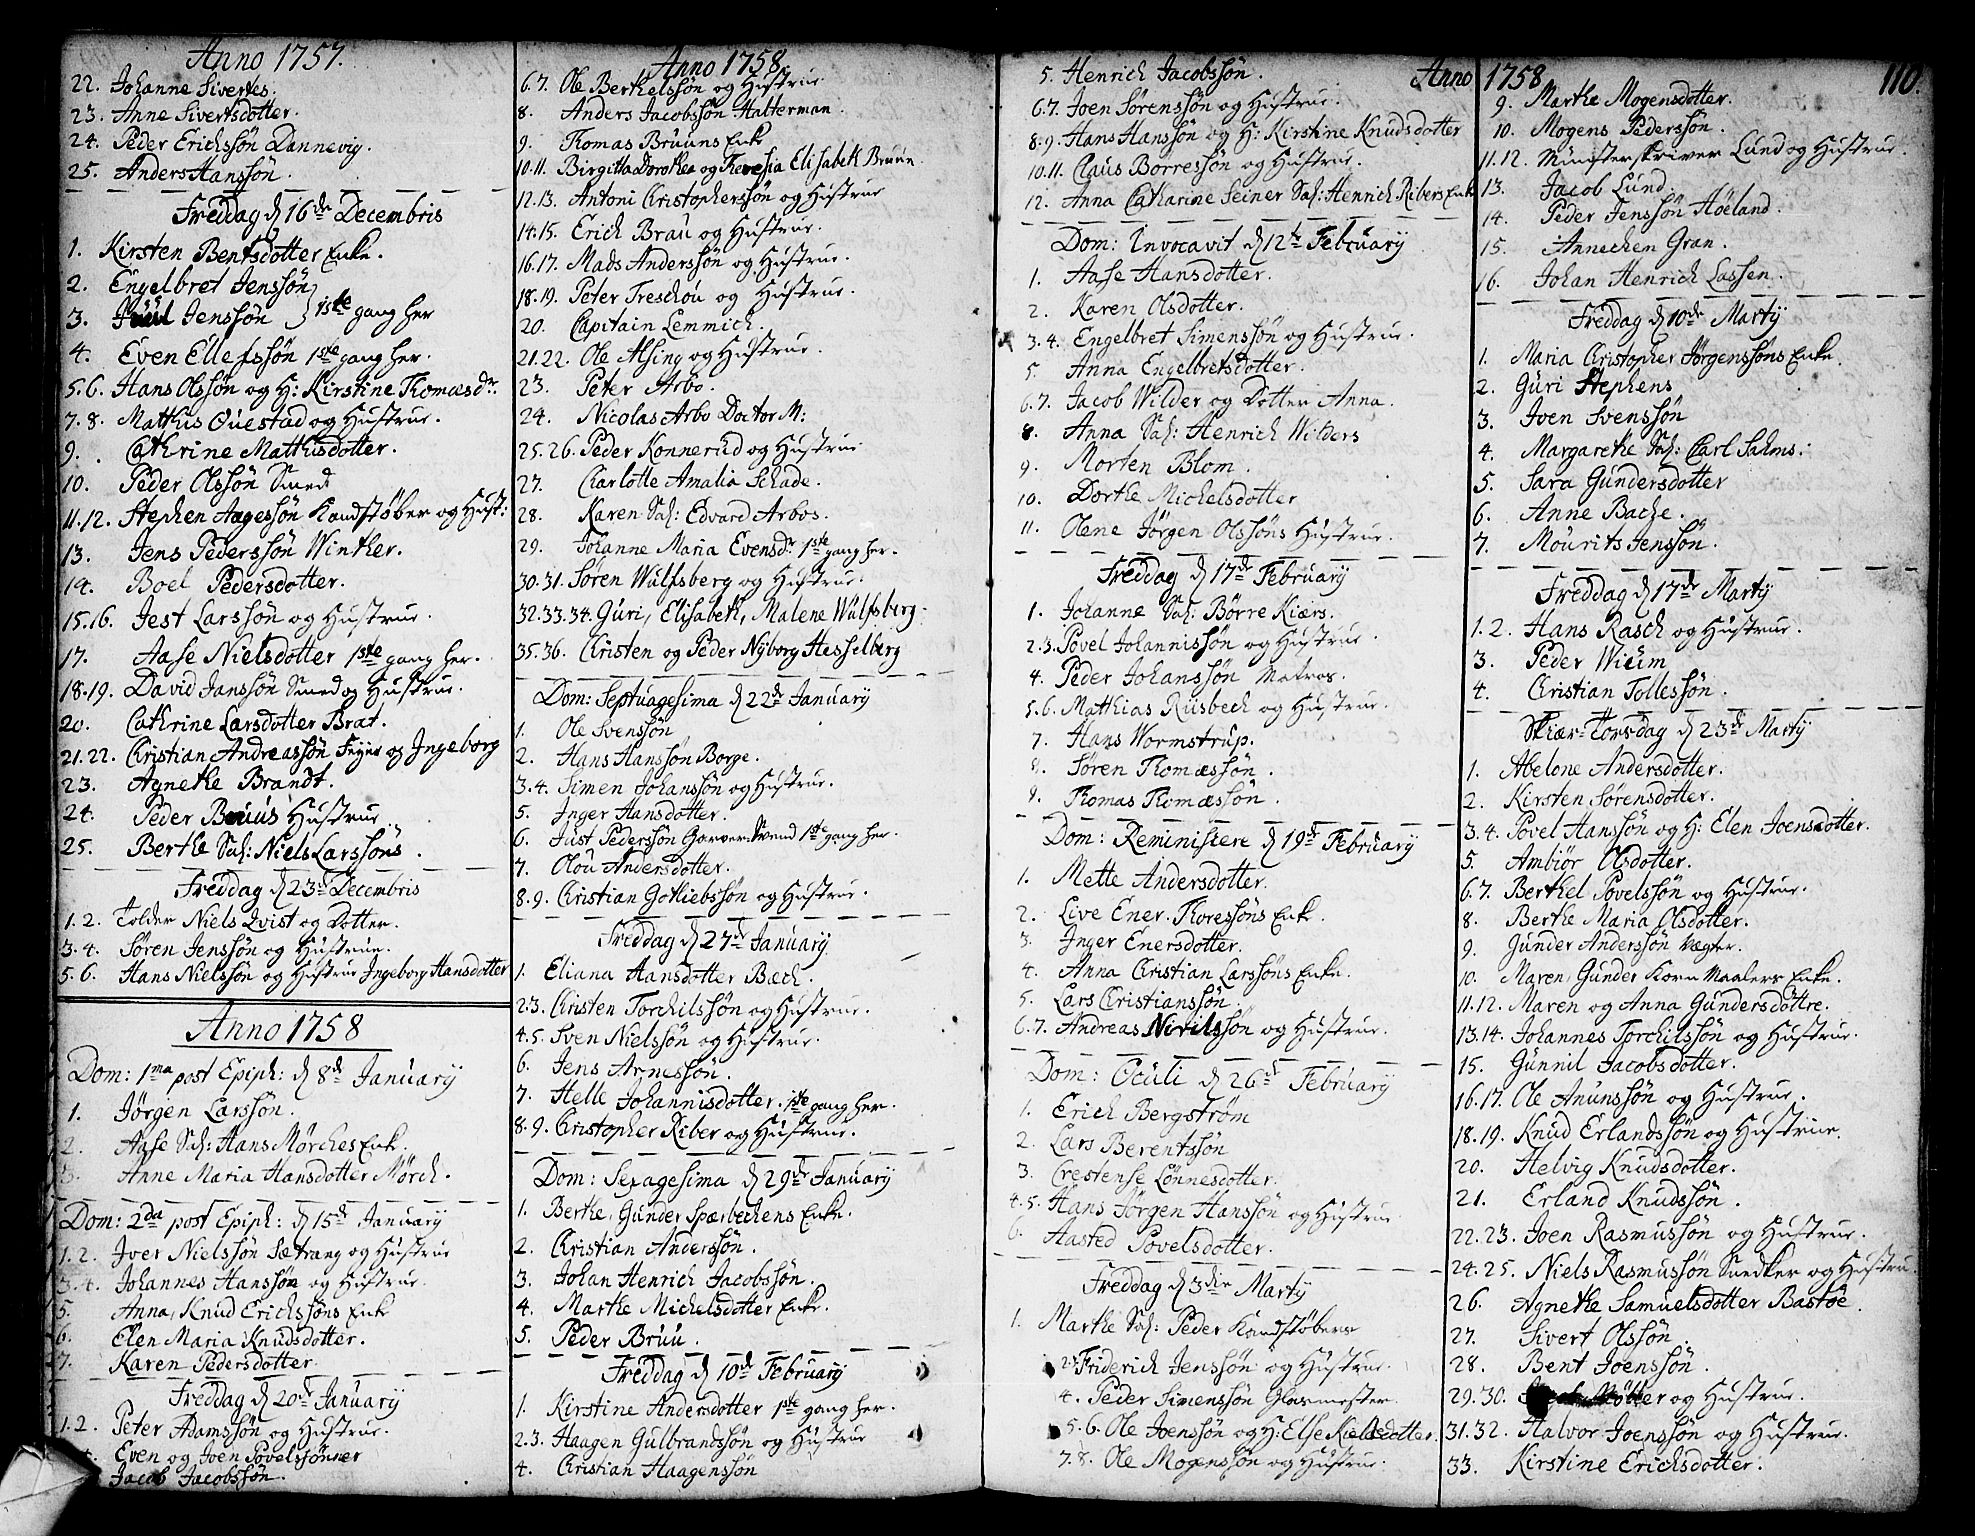 Anno 1757.
22. Johanne Siverts.
23. Anne Sivertsdotter.
24. Peder Erichssön Dannevig.
25. Anders Hanssön.
Freddag d 16de Decembris
1. Kirsten Bentsdotter Enke.
2. Engelbret Jenssön
3. Juul Jenssön } 1ste gang her
4. Even Ellefssön 1ste gang her.
5.6. Hans Olssön og H: Kirstine Thomæsdr.
7.8. Mathis Questad og Hustrue.
9. Cathrine Mathisdotter.
10. Peder Olssön Smed
11.12. Stephen Aagessön Kandstøber og Hust:
13. Jens Pederssön Winther.
14. Boel Pedersdotter.
15.16. Jest Larssön og Hustrue.
17. Aase Nielsdotter 1ste gang her.
18.19. David Janssön Smed og Hustrue.
20. Cathrine Larsdotter Brat.
21.22. Christian Andreassön Feyer og Ingeborg
23. Agnethe Brandt.
24. Peder Bruus Hustrue.
25. Berthe Sal: Niels Larssöns.
Freddag d 23de Decembris
1.2. Tolder Niels Qvist og Dotter.
3.4. Søren Jenssön og Hustrue.
5.6. Hans Nielssön og Hustrue Ingeborg Hansdotter
Anno 1758
Dom: 1ma post Epiph: d 8de January
1. Jörgen Larssön.
2. Aase Sal: Hans Mörches Enke.
3. Anne Maria Hansdotter Mörch.
Dom: 2da post Epiph: d 15de January
1.2. Iver Nielssön Sætrang og Hustrue
3.4. Johannes Hanssön og Hustrue.
5. Anna, Knud Erichssöns Enke
6. Elen Maria Knudsdotter.
7. Karen Pedersdotter
Freddag d 20de January
1.2. Peter Adamssön og Hustrue.
Even og Joen Povelssönner
Jacob Jacobssön.
Anno 1758.
6.7. Ole Berthelssön og Hustrue
8. Anders Jacobssön Halterman.
9. Thomas Bruuns Enke
10.11. Birgitta Dorothea og Theresia Elisabeth Bruun.
12.13. Antoni Christopherssön og Hustrue
14.15. Erich Brau og Hustrue.
16.17. Mads Anderssön og Hustrue.
18.19. Peter Treschou og Hustrue.
20. Capitain Lemmich.
21.22. Ole Alsing og Hustrue.
23. Peter Arbo.
24. Nicolas Arbo Doctor M:
25.26. Peder Konnerud og Hustrue
27. Charlotte Amalia Schade.
28. Karen Sal: Edvard Arbos.
29. Johanne Maria Evensdr. 1ste gang her.
30.31. Søren Wulfsberg og Hustrue.
32.33.34. Guri, Elisabeth, Malene Wulfsberg.
35.36. Christen og Peder Nyborg Hesselberg
Dom: Septuagesima d 22de January
1. Ole Svenssön
2. Hans Hanssøn Borge.
3.4. Simen Johanssön og Hustrue.
5. Inger Hansdotter.
6. Just Pederssön Garver-Svend 1ste gang her.
7. Olou Andersdotter.
8.9. Christian Gotliebssön og Hustrue.
Freddag d 27de January
1. Eliana Hansdotter Bæch.
2.3. Christen Torchilssön og Hustrue.
4.5. Sven Nielssön og Hustrue.
6. Jens Arnessön.
7. Helle Johannisdotter. 1ste gang her.
8.9. Christopher Riber og Hustrue.
Dom: Sexagesima d 29de January
1. Berthe, Gunder Spærbechens Enke.
2. Christian Anderssön.
3. Johan Henrich Jacobssön.
4. Marthe Michelsdotter Enke.
5. Peder Bruu.
Freddag d 10de February
1. Kirstine Andersdotter 1ste gang her.
2.3. Haagen Gulbrandssön og Hustrue
4. Christian Haagenssön
Anno 1758
5. Henrich Jacobssön.
6.7. Joen Sörenssön og Hustrue.
8.9. Hans Hanssön og H: Kirstine Knudsdotter
10.11. Claus Borressön og Hustrue.
12. Anna Catharine Seiner Sal: Henrich Ribers Enke
Dom: Invocavit d 12te February
1. Aase Hansdotter.
2. Karen Olsdotter.
3.4. Engelbret Simenssön og Hustrue.
5. Anna Engelbretsdotter.
6.7. Jacob Wilder og Dotter Anna.
8. Anna Sal: Henrich Wilders
9. Morten Blom.
10. Dorthe Michelsdotter
11. Olene Jörgen Olssöns Hustrue.
Freddag d 17de February
1. Johanne Sal: Börre Kiærs.
2.3. Povel Johannissön og Hustrue.
4. Peder Johanssön Matros.
5.6. Matthias Riisbech og Hustrue.
7. Hans Wormstrup.
8. Søren Thomæssön.
9. Thomas Thomæssön.
Dom: Reminiscere d 19de February
1. Mette Andersdotter.
2. Live Ener. Thoressöns Enke.
3. Inger Enersdotter.
4. Anna Christian Larssöns Enke.
5. Lars Christianssön.
6.7. Andreas Nirilssön og Hustrue.
Dom: Oculi d 26de February
1. Erich Bergström
2. Lars Berentssön
3. Crestense Lönnesdotter.
4.5. Hans Jörgen Hanssön og Hustrue
6. Aasted Povelsdotter.
Freddag d 3die Marty
1. Marthe Sal: Peder Kandstøbers
2.3. Friderich Jenssön og Hustrue.
4. Peder Simenssön Glasmester
5.6. Ole Joenssön og H: Else Kieldsdotter.
7.8. Ole Mogenssön og Hustrue.
110.
9. Marthe Mogensdotter.
10. Mogens Pederssön.
11.12. Münsterskriver Lund og Hustrue.
13. Jacob Lund.
14. Peder Jenssön Höeland.
15. Annechen Gran.
16. Johan Henrich Lassen.
Freddag d 10de Marty
1. Maria Christopher Jörgenssöns Enke.
2. Guri Stephens
3. Joen Svenssön
4. Margarethe Sal: Carl Sahms:
5. Sara Gundersdotter
6. Anne Bache.
7. Mourits Jenssön.
Freddag d 17de Marty
1.2. Hans Rasch og Hustrue.
3. Peder Wium
4. Christian Tollessön.
Skiær-Torsdag d 23de Marty
1. Abelone Andersdotter.
2. Kirsten Sörensdotter.
3.4. Povel Hanssön og H: Elen Joensdotter.
5. Ambiör Olsdotter.
6.7. Berthel Povelssön og Hustrue.
8. Berthe Maria Olsdotter.
9. Gunder Anderssön Vægter.
10. Maren, Gunder Korn Maalers Enke.
11.12. Maren og Anna Gundersdöttre.
13.14. Johannes Torchilssön og Hustrue.
15. Gunnil Jacobsdotter.
16.17. Ole Anunssön og Hustrue.
18.19. Knud Erlandssön og Hustrue.
20. Helvig Knudsdotter.
21. Erland Knudssön.
22.23. Joen Rasmussön og Hustrue.
24.25. Niels Rasmussön Snedker og Hustru.
26. Agnethe Samuelsdotter Bastöe.
27. Sivert Olssön.
28. Bent Joenssön.
29.30. og Hustrue.
31.32. Halvor Joenssön og Hustrue.
33. Kirstine Erichsdotter.